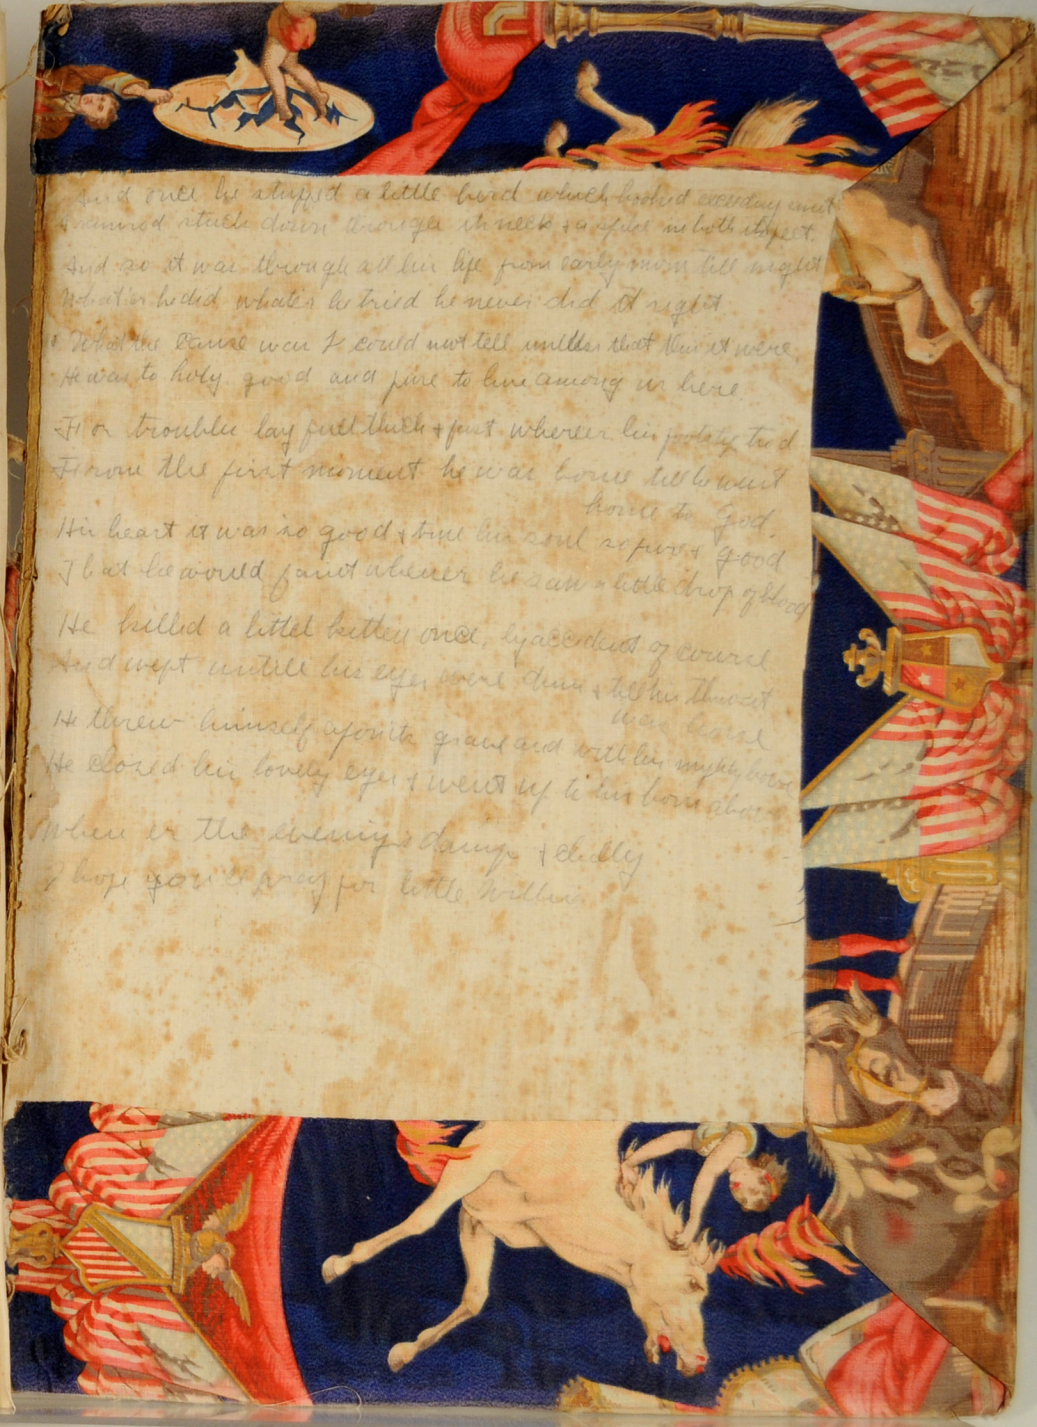 And once he stuffed a little bird which looked exceeding
down through its neck + a spike in both its feet.
And so it was through all his life from early morn till night
What'er he did whate'er he tried he never did it right
What the cause was I could not tell unless that this it were,
He was to holy good and pure to live among us here
For troubles lay full thick + fast wherever his
From the first moment he was borne till he went
home to God.
His heart it was so good + true his soul so pure + good
That he would faint whener he saw a little drop of blood
He killed a littel kitten once, by accident of course
And wept untill his eyes were dim + till his throat
was horse
He threw himself upon its grave and with his
He closed his lovely eyes + went up to his home above
When er the evenings damp + chilly
I hope you'll pray for little Willie